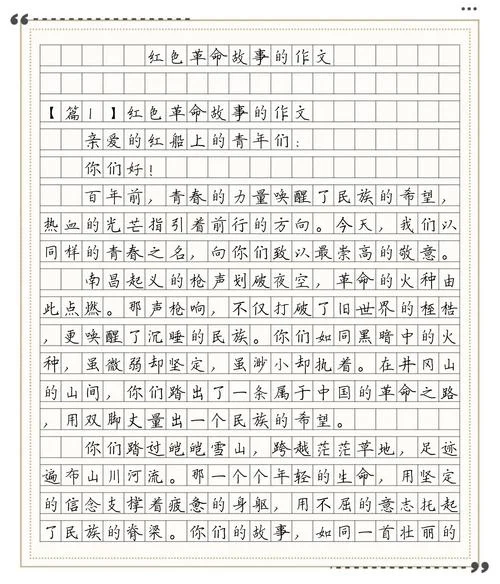 红色革命故事的作文
【篇1】红色革命故事的作文
亲爱的红船上的青年们:
你们好!
百年前,青春的力量唤醒了民族的希望,
热血的光芒指引着前行的方向。今天,我们以
同样的青春之名,向你们致以最崇高的敬意。
南昌起义的枪声划破夜空,革命的火种由
此点燃。那声枪响,不仅打破了旧世界的桎梏
,更唤醒了沉睡的民族。你们如同黑暗中的火
种,虽微弱却坚定,虽渺小却执着。在井冈山
的山间,你们踏出了一条属于中国的革命之路
,用双脚丈量出一个民族的希望。
你们踏过皑皑雪山,跨越茫茫草地,足迹
遍布山川河流。那一个个年轻的生命,用坚定
的信念支撑着疲惫的身躯,用不屈的意志托起
了民族的脊梁。你们的故事,如同一首壮丽的